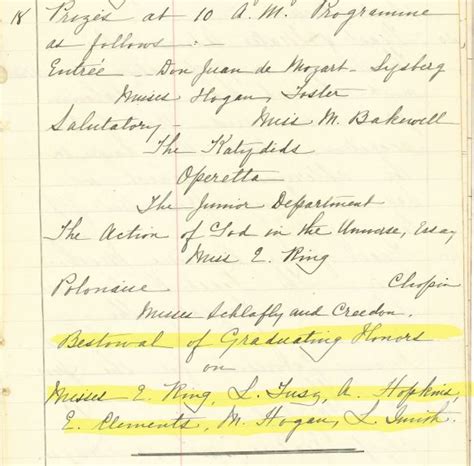 18 Prizes at 10 A.M. Programme
as follows :-
Entrée - Don Juan de Mozart - Lysberg
Misses Hogan, Foster
Salutatory - Miss M. Bakewell
The Katydids
Operetta
The Junior Department
The Action of God in the Universe, Essay
Miss E. Ring
Polonaise Chopin
Misses Schlafly and Creedon.
Bestowal of Graduating Honors
on
Misses E. Ring, L. Tusy, A. Hopkins,
E. Clements, M. Hogan, L. Smith.